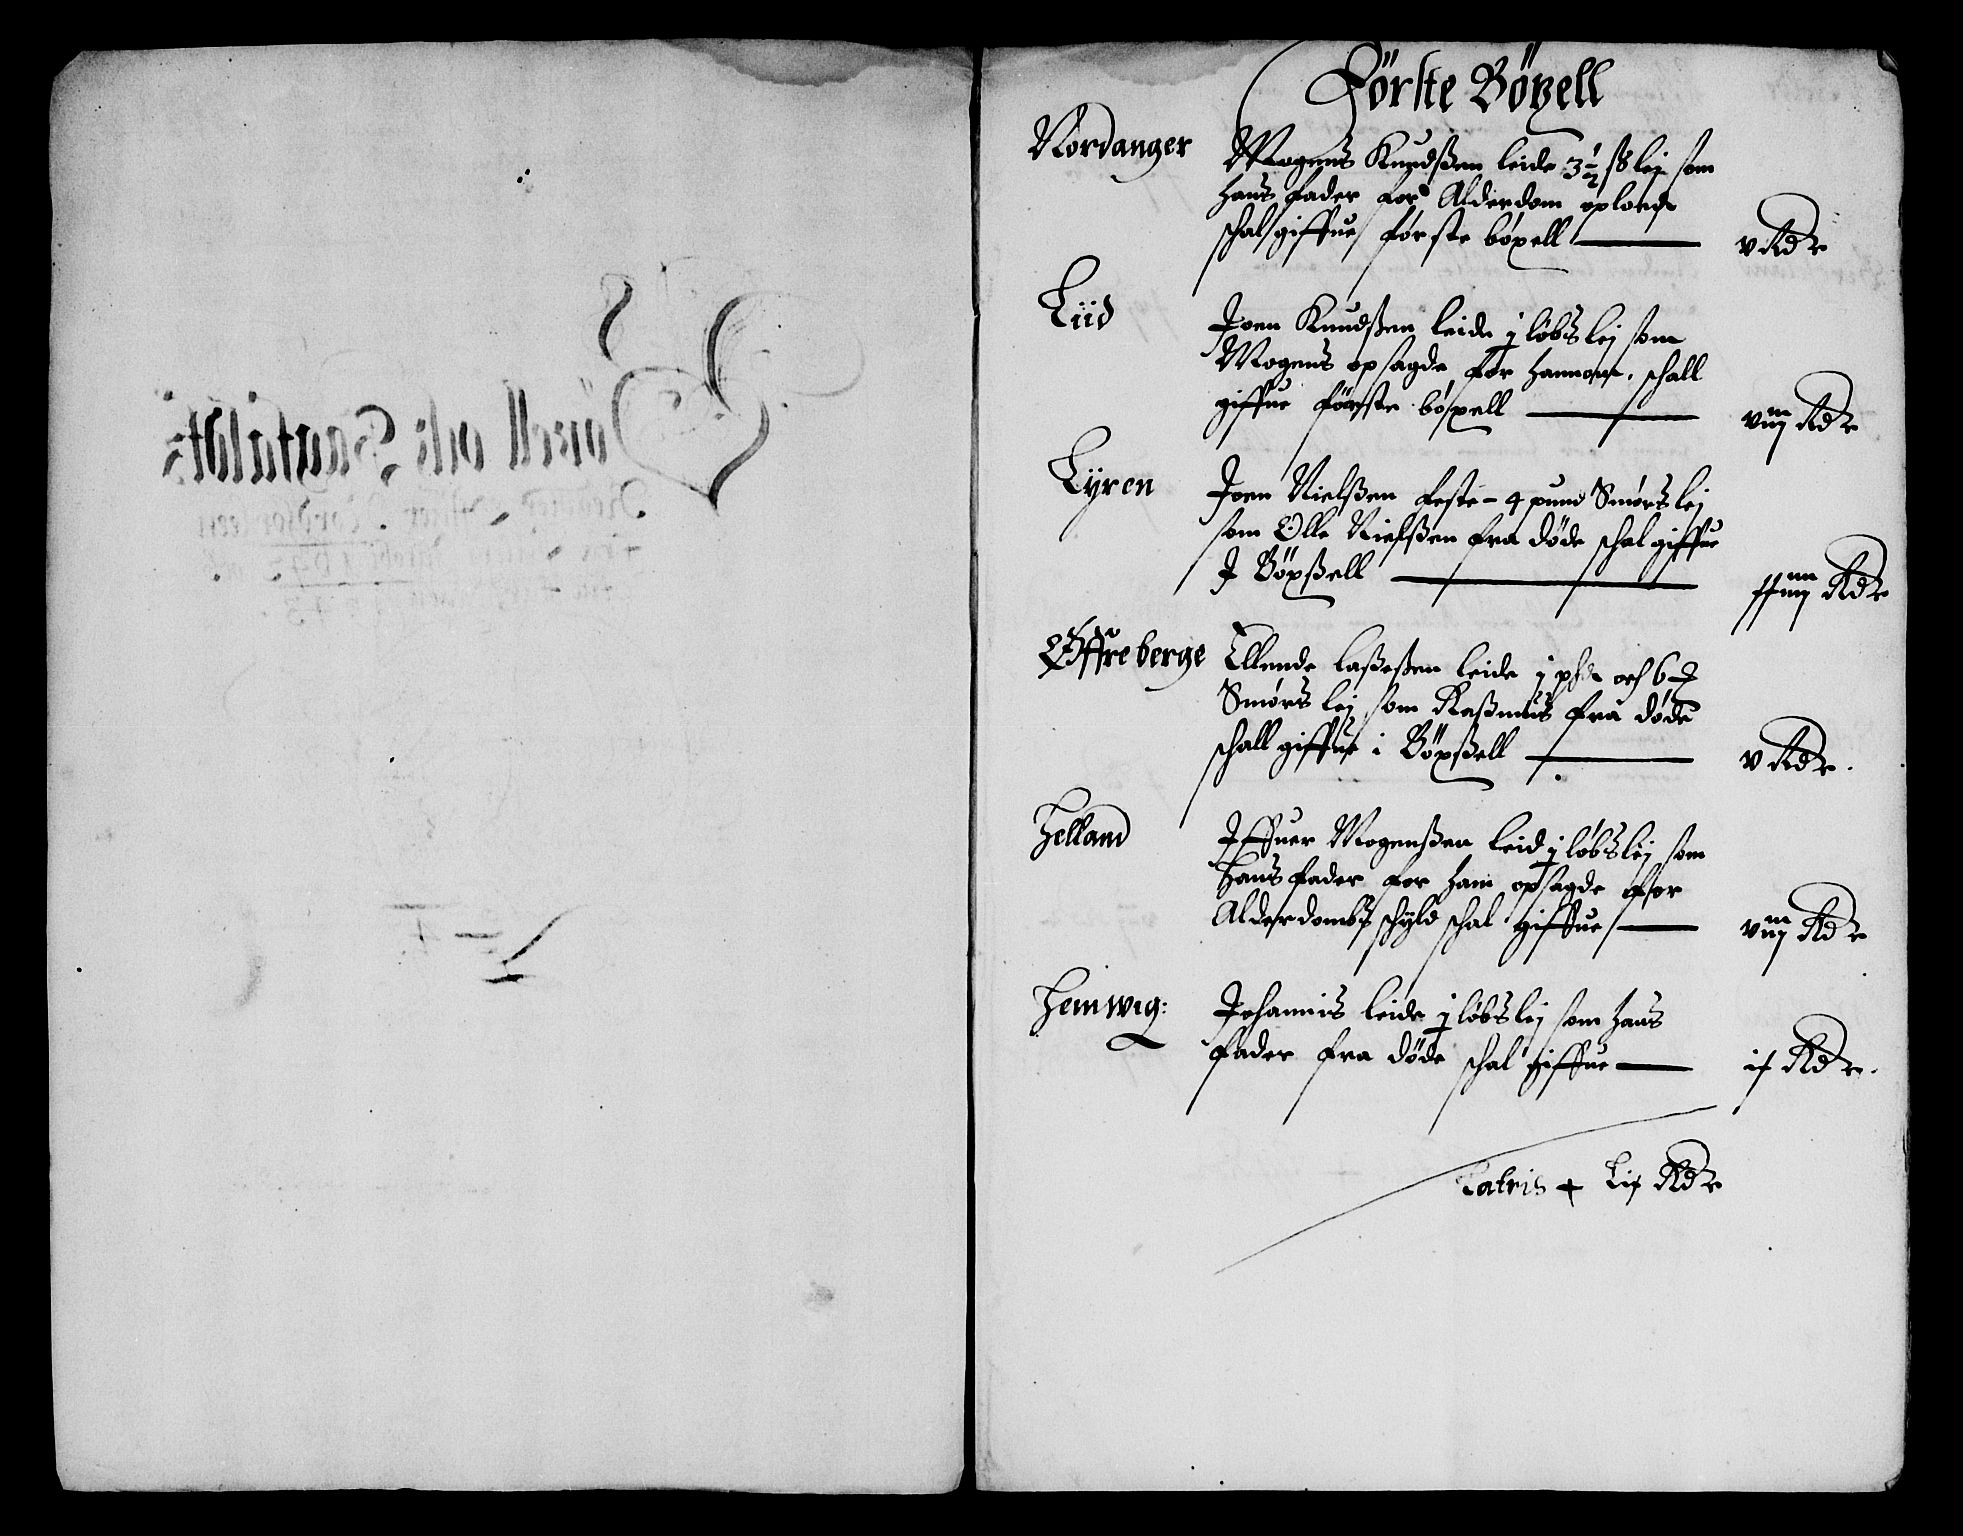 Förste Böxell
Nordanger Mogens Knudßen leide 3 1/2 ß leij som
hans fader for Alderdom oploed
schal giffue første böxell v Rdr
Liid Joen Knudßen leide j løbs leij som
Mogens opsagde for hannom, schall
giffue förste böxell viij Rdr
Lyren Joen Nielßen feste 4 pund Smørs leij
som Olle Nielßen fra døde schal giffue
J Böxßell Rdr
Øffreberge Ellende Laßeßen leide j och 6
Smørs leij som Raßmus fra døde
schall giffue i Böxßell v Rdr.
Helland Iffuer Mogenßen leid j løbs leij som
Hans fader for ham opsagde for
Alderdombs schyld schal giffue viij Rdr
Hemwig: Johannis leide j løbs leij som hans
fader fra døde schal giffue Rdr.
Latris Lij Rdr